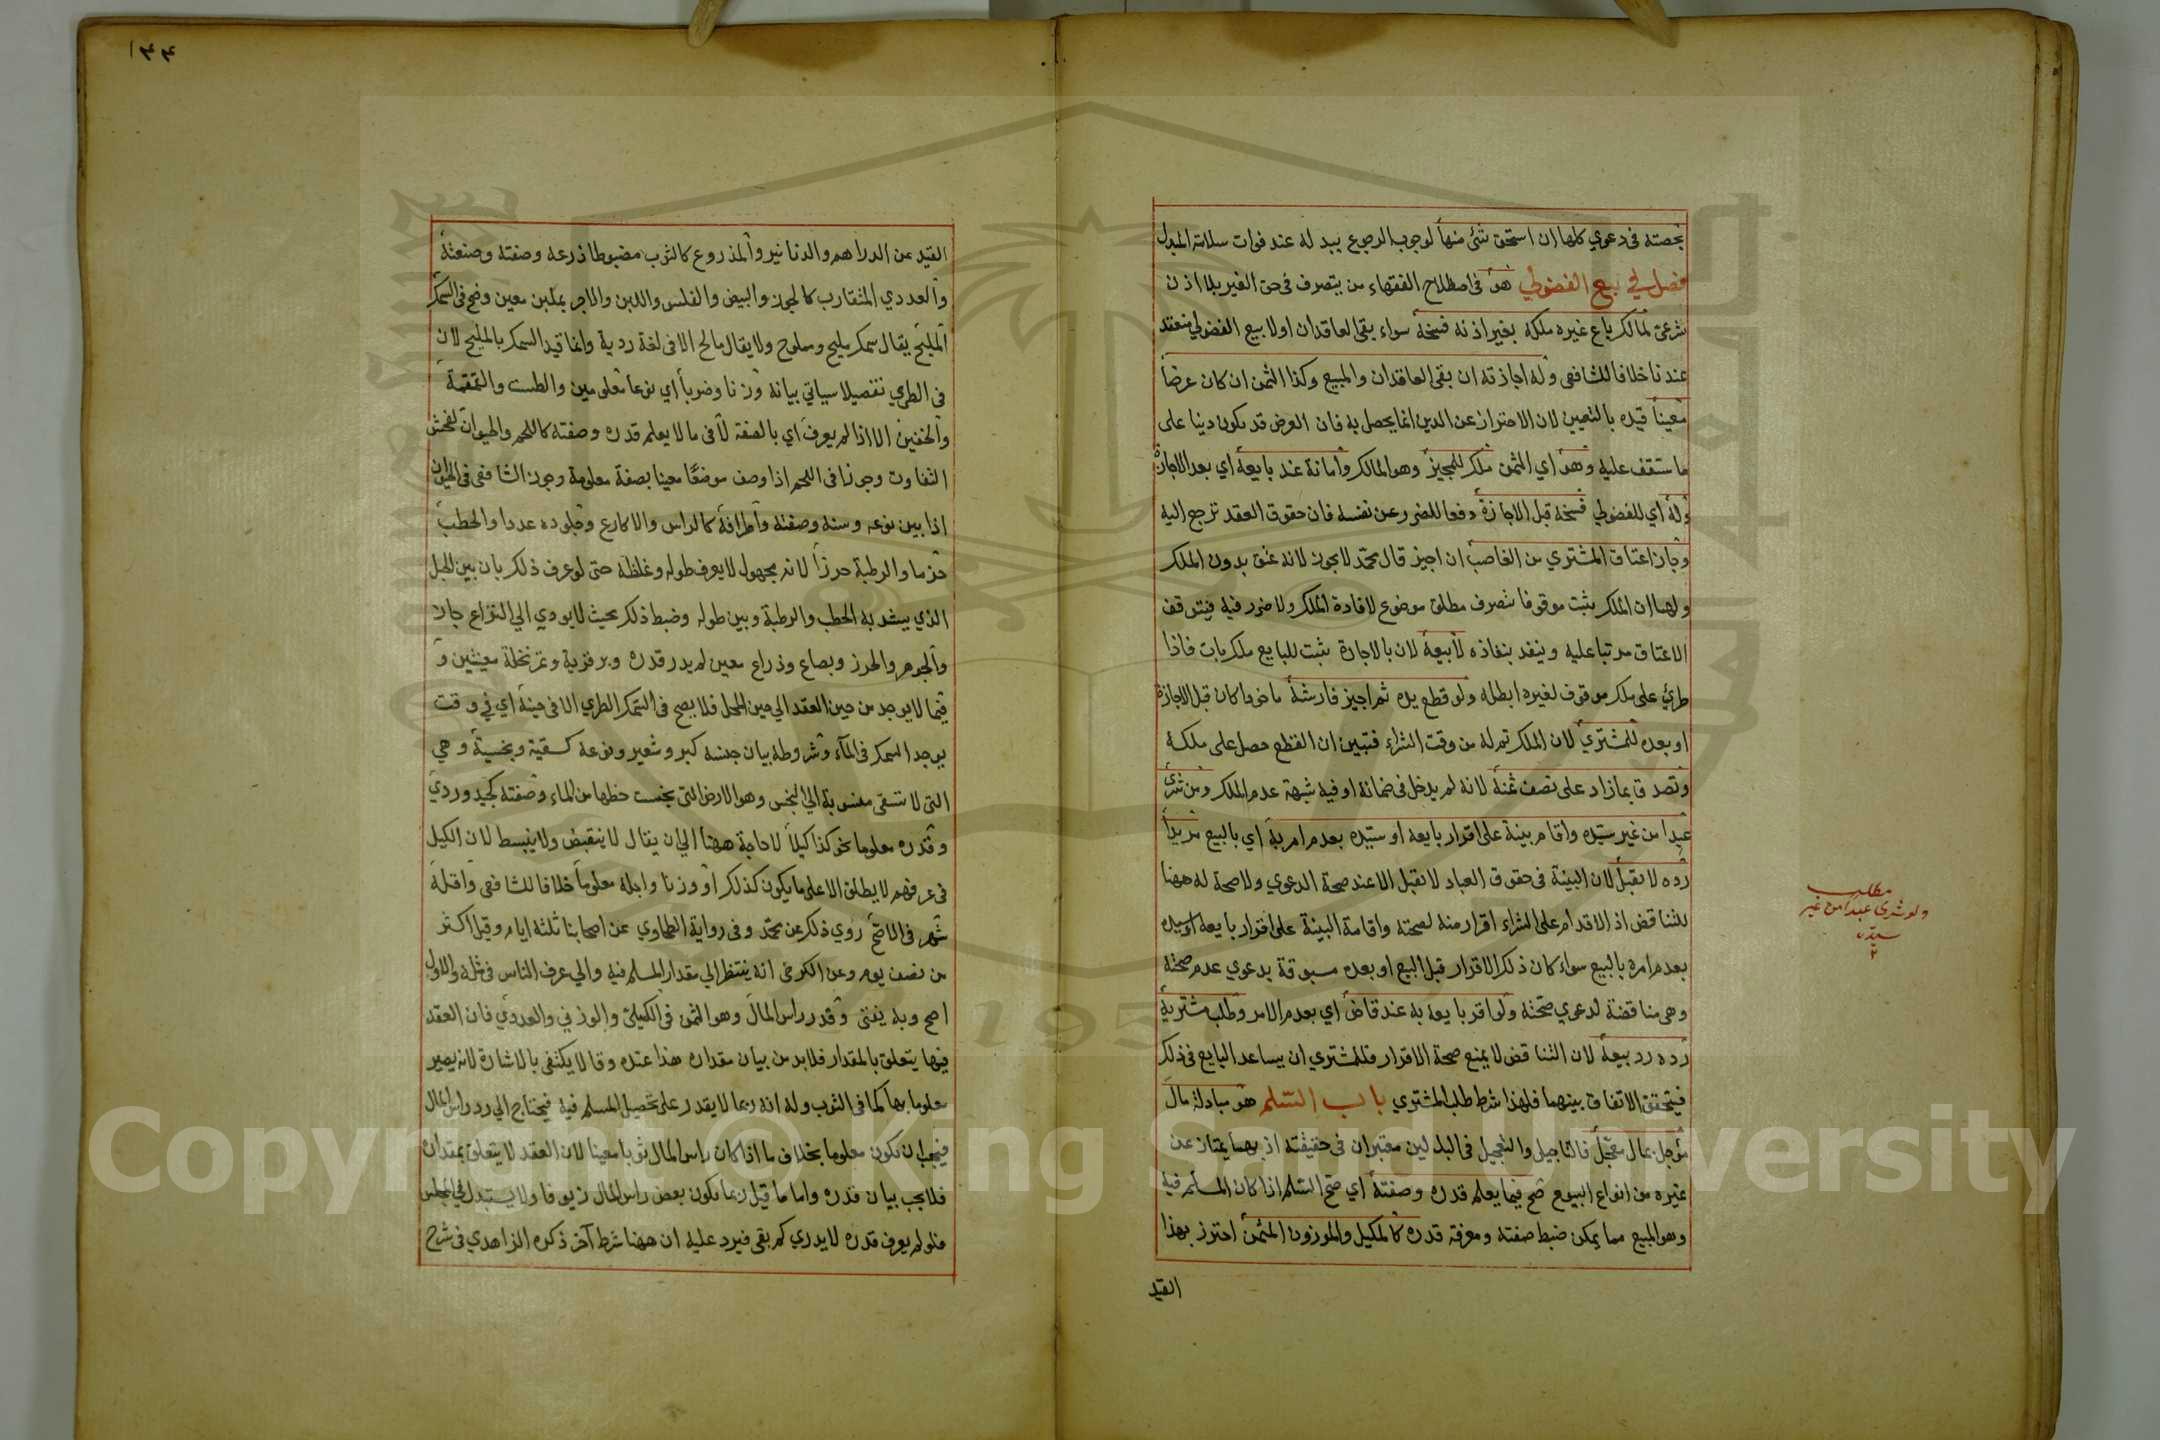 بحصته فى دعوي كلها ان استحق شئ منها لوجوب الرجوع ببدله عند فوات سلامة المبدل
فصل في بيع الفضولي هو فى اصطلاح الفقهاء من يتصرف فى حق الغير بلا اذن
شرعى لمالك باع غيره ملكه بغير اذنه فسخه سواء بقى العاقدان اولا بيع الفضولي منعقد
عندنا خلافا للشافعى وله اجازته ان بقى العاقدان والمبيع وكذا الثمن ان كان عرضا
معينا قيده بالتعيين لان الاحتراز عن الدين انما يحصل به فان العرض قد يكون دينا على
ما ستقف عليه وهو اي الثمن ملك للمجيز وهو المالك وامانة عند بايعه اي بعد الاجازة
وله اي للفضولي فسخه قبل الاجازة دفعا للضرر عن نفسه فان حقوق العقد ترجع اليه
وجاز اعتاق المشتري من الغاصب ان اجيز قال محمد لا يجوز لانه عتق بدون الملك
ولهما ان الملك يثبت موقوفا بتصرف مطلق موضوع لافادة الملك ولا ضرر فيه فيتوقف
الاعتاق مرتبا عليه وينفذ بنفاذه لا بيعه لان بالاجازة يثبت للبايع ملك بات فاذا
طرئ على ملك موقوف لغيره ابطله ولو قطع يده ثم اجيز فارشه ماخوذا كان قبل الاجازة
او بعده للمشتري لان الملك تم له من وقت الشراء فتبين ان القطع حصل على ملكه
وتصدق بما زاد على نصف ثمنه لانه لم يدخل فى ضمانه او فيه شبهة عدم الملك ومن شرى
عبدا من غير سيده واقام بينة على اقرار بايعه او سيده بعدم امر به اي بالبيع مريدا
رده لا تقبل لان البينة فى حقوق العباد لا تقبل الا عند صحة الدعوي ولا صحة له ههنا
للتناقض اذ الاقدام على الشراء اقرار منه لصحته واقامة البينة على اقرار بايعه او سيده
بعدم امره بالبيع سواء كان ذلك الاقرار قبل البيع او بعده مسبوقة بدعوي عدم صحته
وهى مناقضة لدعوي صحته ولو اقر بايعه به عند قاض اي بعدم الامر وطلب مشتريه
رده رد بيعه لان التناقض لا يمنع صحة الاقرار فللمشتري ان يساعد البايع فى ذلك
فيتحقق الاتفاق بينهما فلهذا شرط طلب المشتري باب السلم هو مبادلة مال
مؤجل بمال معجل فالتاجيل والتعجيل فى البدلين معتبران فى حقيقته اذ بهما يمتاز عن
غيره من انواع البيوع صح فيما يعلم قدره وصفته اي صح السلم اذا كان المسلم فيه
وهو المبيع مما يمكن ضبط صفته ومعرفة قدره كالمكيل والموزون المثمن احترز بهذا
القيد
مطلب
ولو شرى عبدا من غير
سيده
١٣٤
القيد عن الدراهم والدنانير والمذروع كالثوب مضبوطا ذرعه وصفته وصنعته
والعددي المتقارب كالجوز والبيض والفلس واللبن والاجر بملبن معين وصح فى السمك
المليح يقال سمك مليح ومملوح ولا يقال مالح الا فى لغة ردية وانما قيد السمك بالمليح لان
فى الطري تفصيلا سياتي بيانه وزنا وضربا اي نوعا معلومين والطست والقمقمة
والخفين الا اذا لم يعرف اي بالصفة لا فى ما لا يعلم قدره وصفته كاللحم والحيوان لفحش
التفاوت وجوزا فى اللحم اذا وصف موضعا معينا بصفة معلومة وجوز الشافعى فى الحيوان
اذا بين نوعه وسنه وصفته واطرافه كالراس والاكارع وجلوده عددا والحطب
حزما والرطبة جرزا لانه مجهول لا يعرف طوله وغلظه حتى لو عرف ذلك بان بين الحبل
الذي يشد به الحطب والرطبة وبين طوله وضبط ذلك بحيث لا يودي الي النزاع جاز
والجوهر والخرز وبصاع وذراع معين لم يدر قدره وبر قرية وتمر نخلة معينتين و
فيما لا يوجد من حين العقد الي حين المحل فلا يصح فى السمك الطري الا فى حينه اي في وقت
يوجد السمك فى المآء وشروطه بيان جنسه كبر وشعير ونوعه كسقية وبخسية وهي
التى لا تسقى منسوبة الي البخس وهو الارض التى بخست حظها من الماء وصفته كجيد وردي
وقدره معلوما نحو كذا كيلا لا حاجة ههنا الي ان يقال لا ينقبض ولا ينبسط لان الكيل
فى عرفهم لا يطلق الا على ما يكون كذلك او وزنا واجله معلوما خلافا للشافعى واقله
شهر فى الاصح روي ذلك عن محمد وفى رواية الطحاوي عن اصحابنا ثلثة ايام وقيل اكثر
من نصف يوم وعن الكرخى انه ينتظر الي مقدار المسلم فيه والي عرف الناس فى مثله والاول
اصح وبه يفتى وقدر راس المال وهو الثمن فى الكيلى والوزني والعددي فان العقد
فيها يتعلق بالمقدار فلا بد من بيان مقداره هذا عنده وقالا يكتفى بالاشارة لانه يصير
معلوما بها كما فى الثوب وله انه ربما لا يقدر على تحصيل المسلم فيه فيحتاج الي رد راس المال
فيجب ان يكون معلوما بخلاف ما اذا كان راس المال ثوبا معينا لان العقد لا يتعلق بمقداره
فلا يجب بيان قدره واما ما قيل ربما يكون بعض راس المال زيوفا ولا يستبدل في المجلس
فلو لم يعرف قدره لا يدري كم بقى فيرد عليه ان ههنا شرط آخر ذكره الزاهدي فى شرح